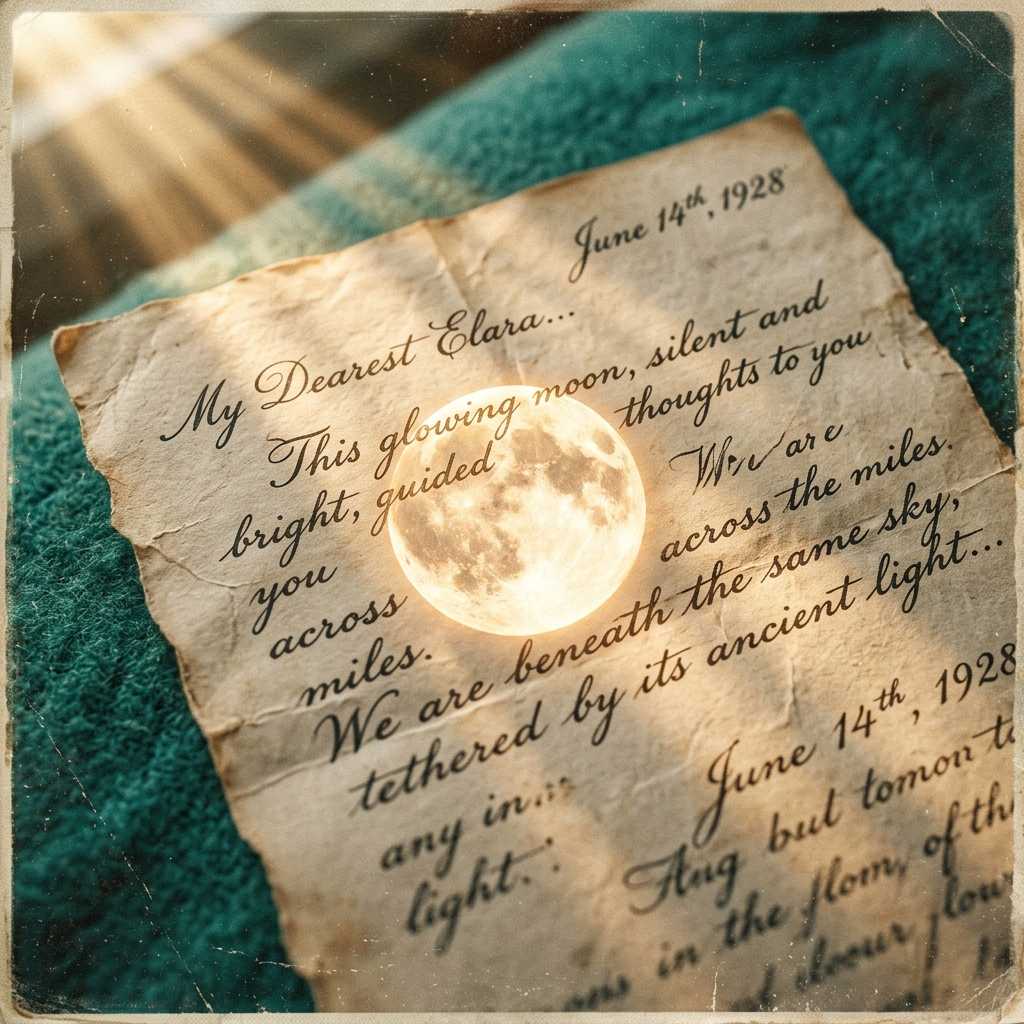 June 14th, 1928
My Dearest Elara...
This glowing moon, silent and
bright, guided thoughts to you
you We are
across across the miles.
miles.
We are beneath the same sky,
tethered by its ancient light...
any in
light.
June 14th, 1928
but tomon
in the flom, of